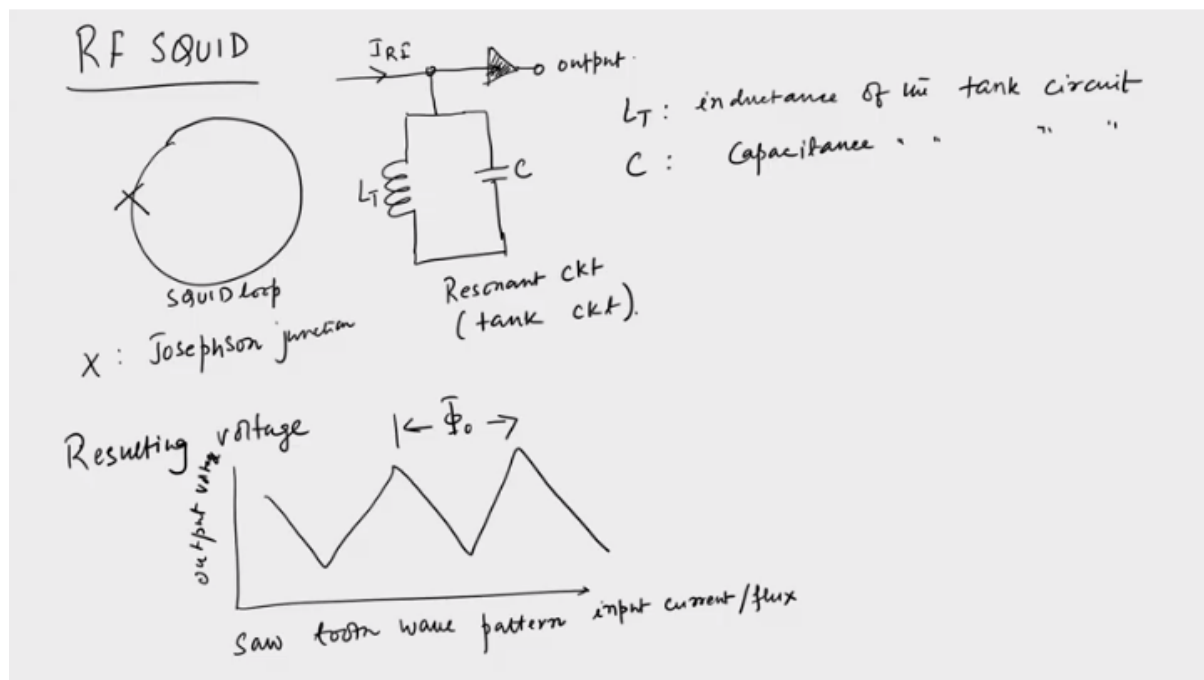 RF SQUID
I_RF
output.
L_T : inductance of the tank circuit
C : Capacitance " " " "
L_T
C
SQUID loop
Resonant ckt
(tank ckt).
X : Josephson junction
Resulting voltage
|← Φ₀ →
output voltage
input current/flux
Saw tooth wave pattern